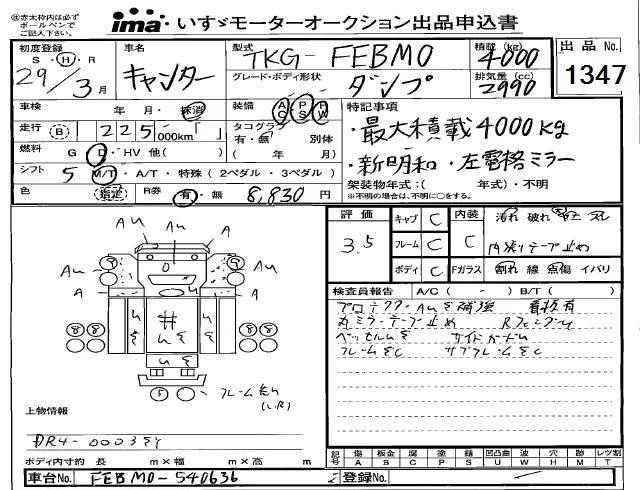 ㊟赤太枠内は必ず
ボールペンで
ご記入下さい。
ima いすゞモーターオークション出品申込書
初度登録
S・H・R
29/3月
車名
キャンター
型式
TKG-FEBM0
グレード・ボディ形状
ダンプ
積載(kg)
4000
排気量(cc)
2990
出品No.
1347
車検 年・月・抹消
装備 AC PS PW
走行 B 225,000km
タコグラフ
有・無 別体
( 年 月)
燃料 G D・HV 他( )
シフト 5 M/T・A/T・特殊(2ペダル・3ペダル)
色 指定
R券 有・無 8,830円
特記事項
・最大積載4000kg
・新明和・左電格ミラー
架装物年式:( 年式)・不明
※不明の場合は、不明に○をする。
評価
3.5
キャブ C
フレーム C
ボディ C
内装 C
汚れ 破れ
内張りテープ止め
Fガラス 割れ 線 点傷 イバリ
検査員報告 A/C( - ) B/T( )
プロテクターAUE補強 看板有
丸ミラーテープ止め RフェンダーU
ベッセルUE サイドガードU
フレームEC サブフレームEC
AU
AU
AU
AU
A
A
A
8 8
8 8
5
フレーム
(L.R)
上物情報
DR4-00038Y
ボディ内寸約 長 m×幅 m×高 m
記号 傷A 板金B 腐C 塗P 錆S 凹凸曲U 波W 穴H 跡M レツ割T
車台No. FEBM0-540636
登録No.